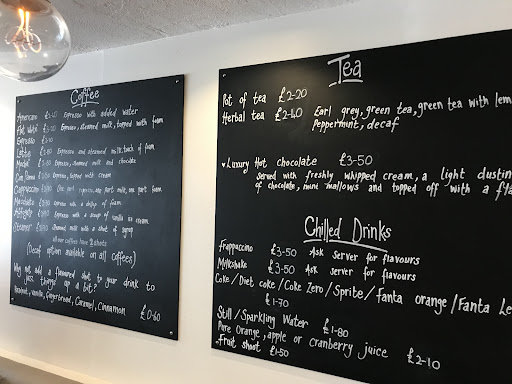 Coffee
Americano Espresso with added water
Flat White Espresso, steamed milk, topped with foam
Espresso
Latte Espresso and steamed milk, touch of foam
Mocha Espresso, steamed milk and chocolate
Con Panna Espresso, topped with cream
Cappuccino One part espresso, one part milk, one part foam
Macchiato Espresso with a dollop of foam
Affogato Espresso with a scoop of vanilla ice cream
Steamer Steamed milk with a shot of syrup
all our coffees have 2 shots
(Decaf option available on all coffees)
Why not add a flavoured shot to your drink to
jazz things up a bit?
Hazelnut, vanilla, Gingerbread, Caramel, Cinnamon £0-60
Tea
Pot of tea £2-20
Herbal tea £2-40 Earl grey, green tea, green tea with lem
Peppermint, decaf
Luxury Hot chocolate £3-50
Served with freshly whipped cream, a light dustin
of chocolate, mini mallows and topped off with a fla
Chilled Drinks
Frappuccino £3-50 Ask server for flavours
Milkshake £3-50 Ask server for flavours
Coke / Diet coke / Coke Zero / Sprite / Fanta orange / Fanta Le
£1-70
Still / Sparkling Water £1-80
Pure Orange, apple or cranberry juice £2-10
Fruit shoot £1-50